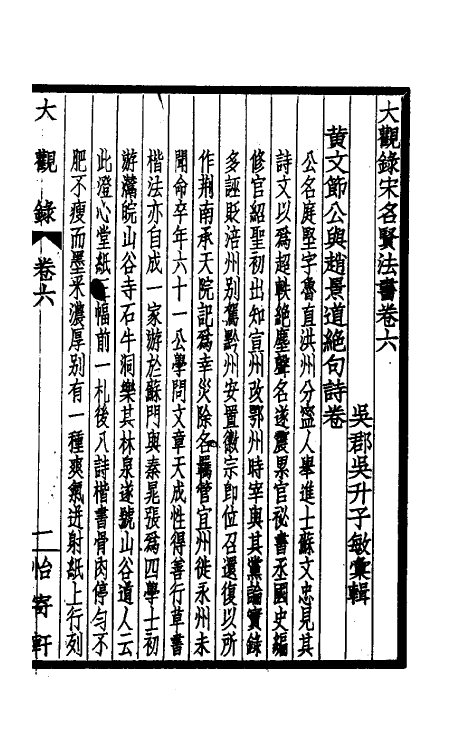 大觀錄宋名賢法書卷六
吳郡吳升子敏彙輯
黃文節公與趙景道絕句詩卷
公名庭堅字魯直洪州分寧人舉進士蘇文忠見其
詩文以爲超軼絕塵聲名遂震累官祕書丞國史編
修官紹聖初出知宣州改鄂州時宰與其黨論實錄
多誣貶涪州别駕黔州安置徽宗即位召還復以所
作荆南承天院記爲幸災除名羈管宜州徙永州未
聞命卒年六十一公學問文章天成性得善行草書
楷法亦自成一家游於蘇門與秦晁張爲四學士初
游灊皖山谷寺石牛洞樂其林泉遂號山谷道人云
此澄心堂紙幅前一札後八詩楷書骨肉停勻不
肥不瘦而墨采濃厚别有一種爽氣迸射紙上行列
大觀錄 卷六 二 怡寄軒